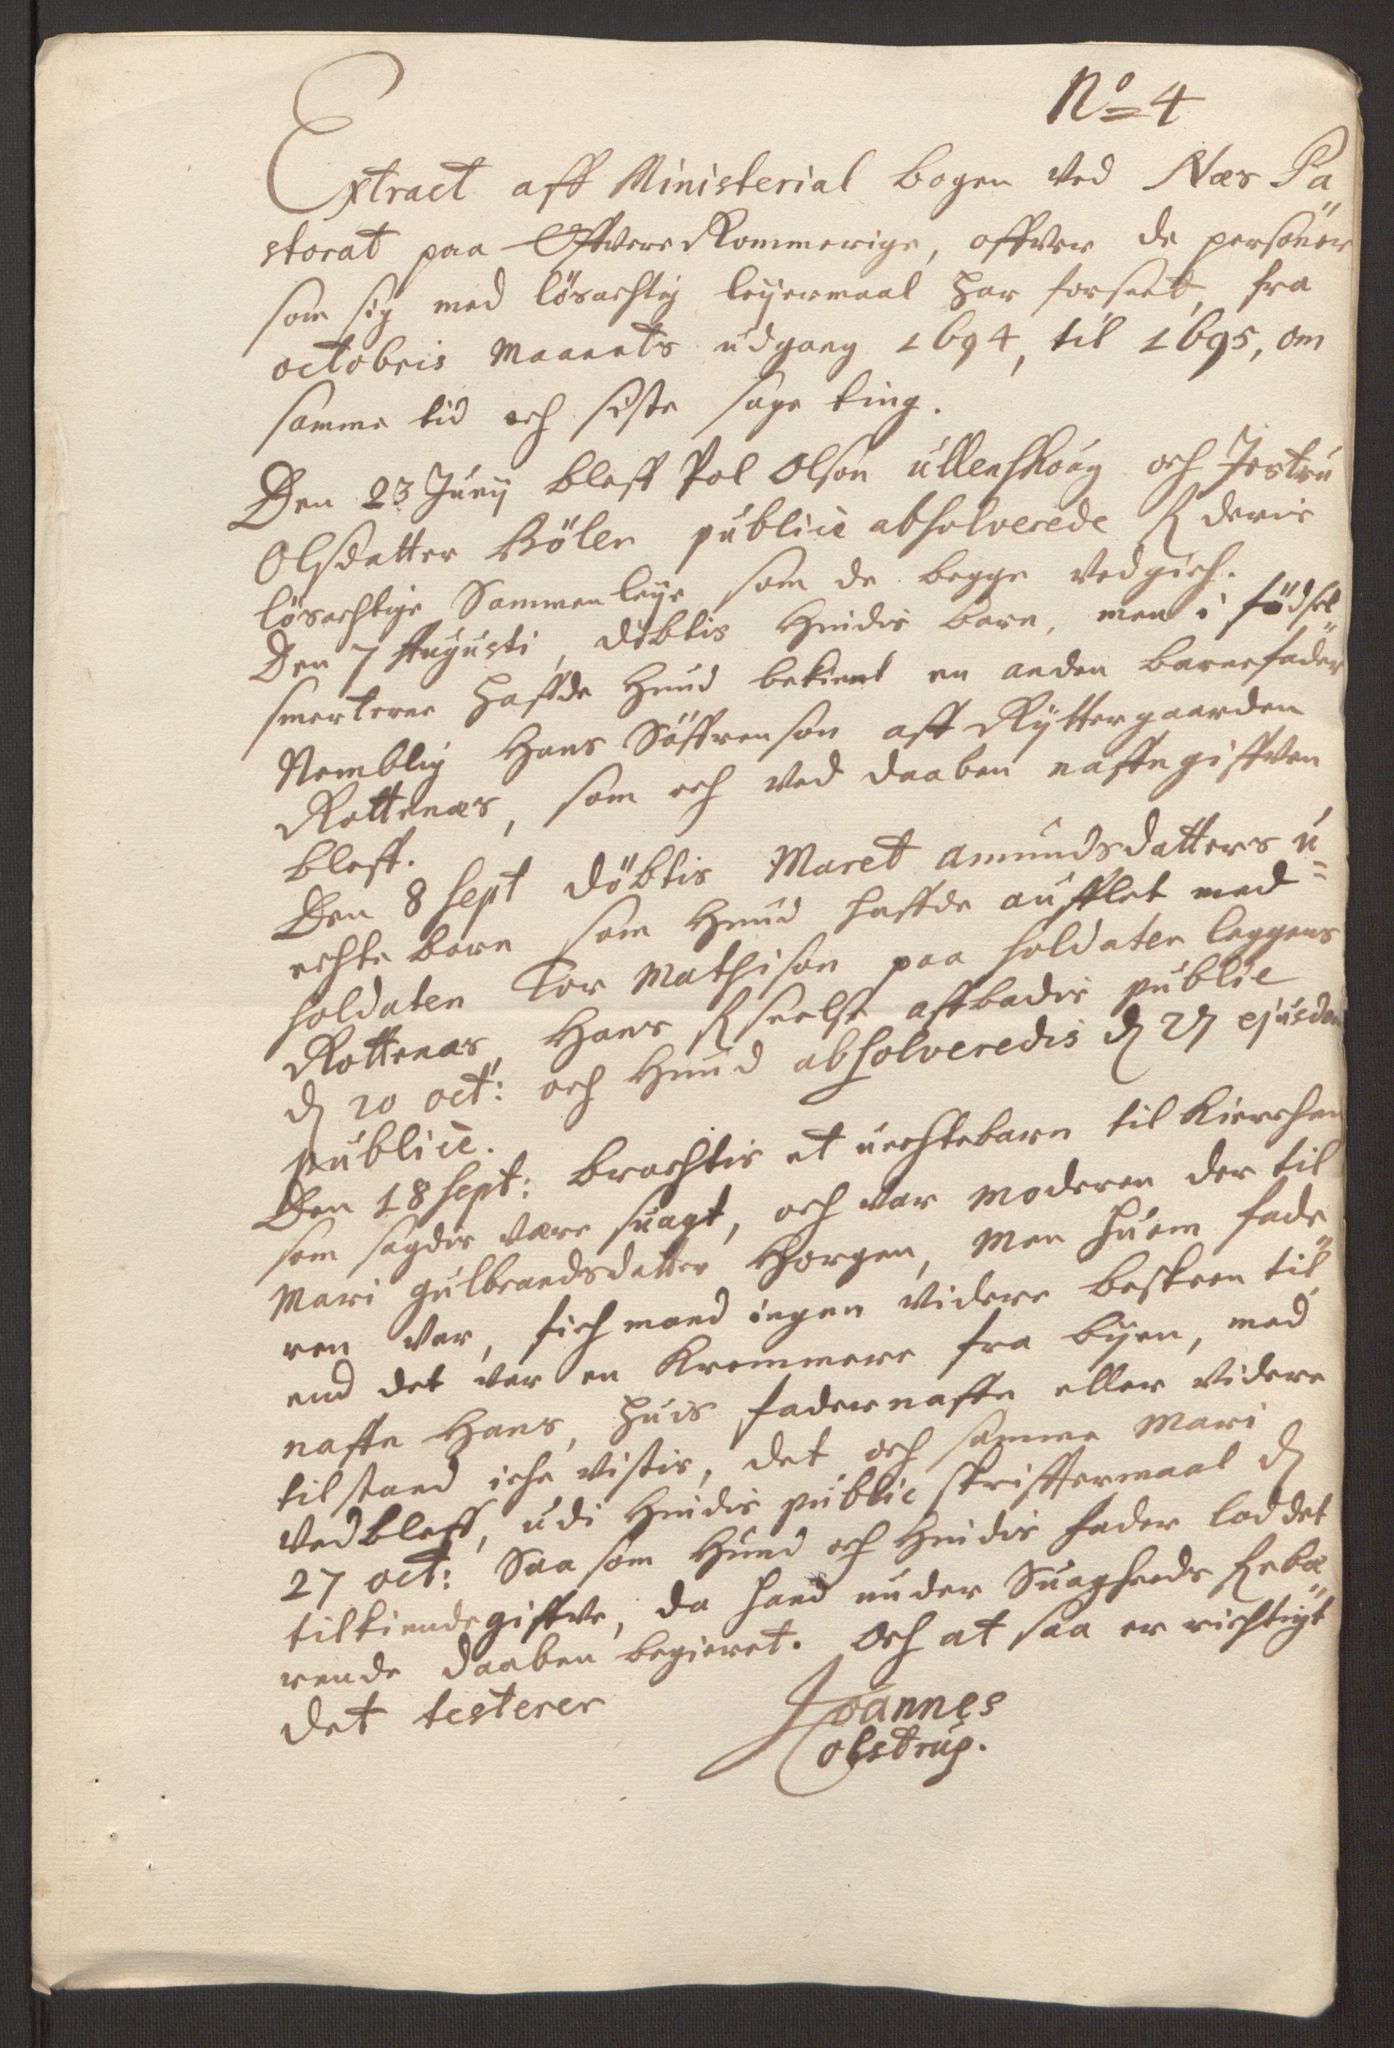 No 4
Extract aff Ministerial bogen ved Næs Pa
storat paa Offvere Rommerige, offver de personer
som sig med lösachtig leyermaal har forseet, fra
octobris Maanets udgang 1694, til 1695, om
samme tid och siste sage ting.
Den 23 Junij bleff Pol Olson ullenshoug och Jestru
Olsdatter Bölen publice absolverede for deris
lösachtige Sammenleye som de begge vedgich.
Den 7 Augusti, döbtis hindis barn, men i födsel
smerterne haffde hund bekient en anden barnefader
Nemblig Hans Söffrenson aff Ryttergaarden
Rottenæs, som och ved daaben naffngiffven
bleff.
Den 8 sept döbtis Maret amundsdatters u
echte barn som hund haffde aufflet med
soldaten Tor Mathison paa soldaten leggens
Rottenæs, Hans forseelse affbadis public
d 20 oct: och hund absolveredis d 27 ejusdem
publice.
Den 18 sept: brachtis et uechtebarn til Kierchen
som sagdis være suagt, och var moderen der til
Mari gulbrandsdatter Horgen, Men huem fade
ren var, fich mand ingen videre beskeen til
end det var en Kremmere fra byen, med
naffn Hans, huis fadernaffn eller videre
tilstand iche vistis, det och samme Mari
vedbleff, udi hindis public skrifftermaal d
27 oct: Saa som hund och hindis fader lod det
tilkiendegiffve, da hand under Suagheds forbæ
rende daaben begieret. Och at saa er richtigt
det testerer
Joannes
Colstrup.